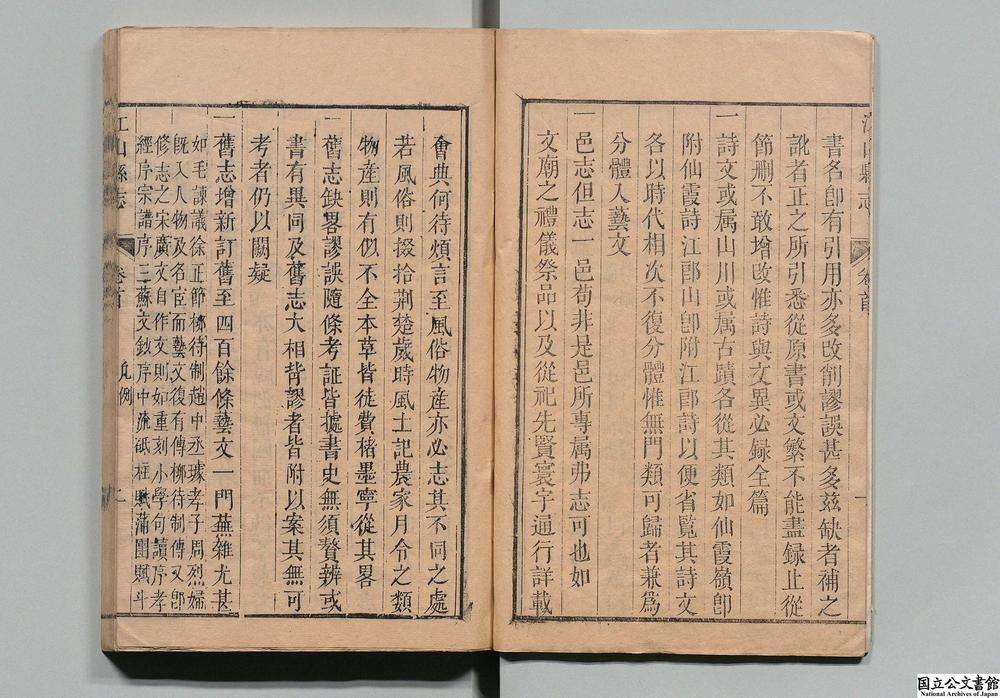 書名卽有引用亦多改削謬誤甚多兹缺者補之
訛者正之所引悉從原書或文繁不能盡録止從
節刪不敢增改惟詩與文異必録全篇
一詩文或属山川或属古蹟各從其類如仙霞嶺卽
附仙霞詩江郎山卽附江郎詩以便省覧其詩文
各以時代相次不復分體惟無門類可歸者兼爲
分體入藝文
一邑志但志一邑苟非是邑所專属弗志可也如
文廟之禮儀祭品以及從祀先賢寰宇通行詳載
會典何待煩言至風俗物産亦必志其不同之處
若風俗則掇拾荆楚歲時風土記農家月令之類
物産則有似不全本草皆徒費楮墨寧從其畧
一舊志缺畧謬誤隨條考証皆據書史無須贅辨或
書有異同及舊志大相背謬者皆附以案其無可
考者仍以闕疑
一舊志增新訂舊至四百餘條藝文一門蕪雜尤甚
如毛諫議徐正節栁待制趙中丞璩孝子周烈婦
旣入人物及名宦而藝文復有傳栁待制傳又卽
修志之宋廣文自作文則如重刻小學句讀序孝
經序宗譜序三蘇文鈔序中流砥柱賦蒲團賦斗
江山縣志
卷首
凡例
江山縣志
卷首
国立公文書館
National Archives of Japan